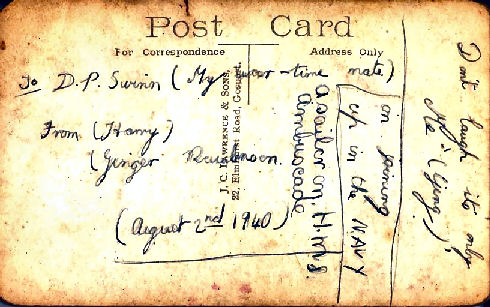 Post Card
For Correspondence
Address Only
To D.P. Swinn (My war-time mate)
From (Harry)
(Ginger
(August 2nd 1940)
J. C. LAWRENCE & SONS,
22, Elmhurst Road, Gosport.
a sailor on H.M.S.
Ambuscade
on joining
up in the NAVY
Don't laugh its only
Me! (Ging.)